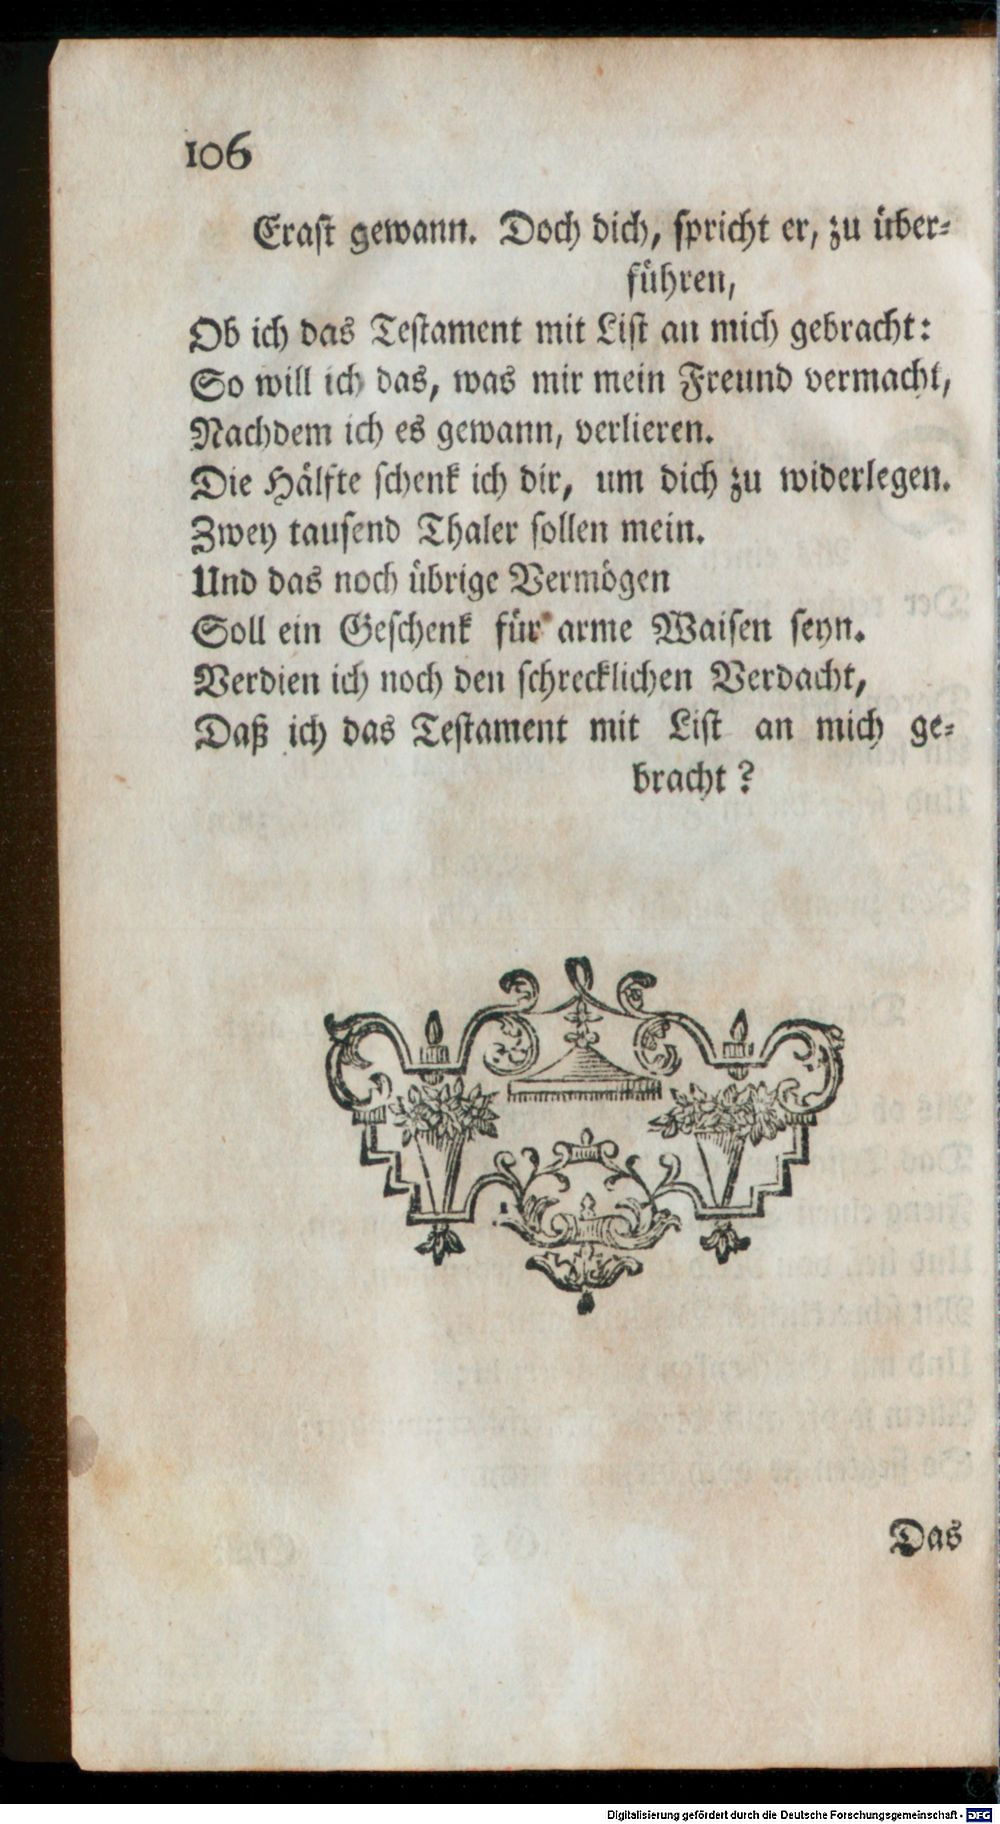 106
Erast gewann. Doch dich, spricht er, zu über-
führen,
Ob ich das Testament mit List an mich gebracht:
So will ich das, was mir mein Freund vermacht,
Nachdem ich es gewann, verlieren.
Die Hälfte schenk ich dir, um dich zu widerlegen.
Zwey tausend Thaler sollen mein.
Und das noch übrige Vermögen
Soll ein Geschenk für arme Waisen seyn.
Verdien ich noch den schrecklichen Verdacht,
Daß ich das Testament mit List an mich ge-
bracht?
Das
Digitalisierung gefördert durch die Deutsche Forschungsgemeinschaft - DFG